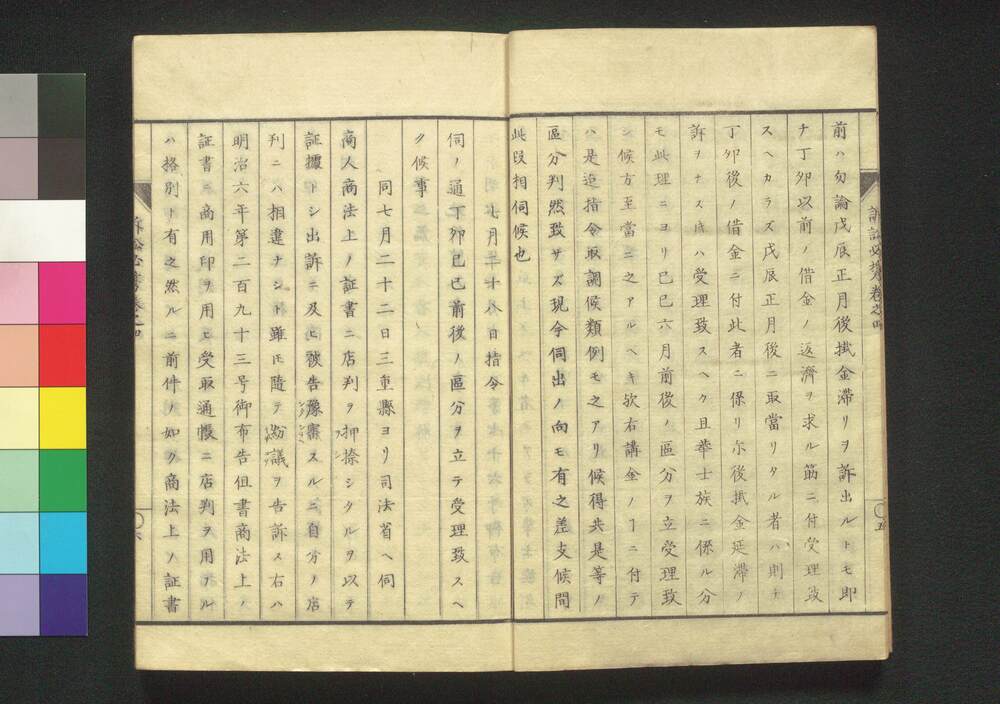 前ハ勿論戊辰正月後掛金滞リヲ訴出ルトモ即
チ丁卯以前ノ借金ノ返済ヲ求ル筋ニ付受理致
スヘカラズ戊辰正月後ニ取當リタル者ハ則チ
丁卯後ノ借金ニ付此者ニ係リ尓後掛金延滞ノ
訴ヲナス時ハ受理致スヘク且華士族ニ係ル分
モ此理ニヨリ己巳六月前後ノ區分ヲ立受理致
シ候方至當ニ之アルヘキ欤右講金ノヿニ付テ
ハ是迠指令取調候類例モ之アリ候得共是等ノ
區分判然致サズ現今伺出ノ向モ有之差支候間
此段相伺候也
七月三十八日指令
伺ノ通丁卯己巳前後ノ區分ヲ立テ受理致スヘ
ク候事
同七月二十二日三重縣ヨリ司法省ヘ伺
商人商法上ノ証書ニ店判ヲ押捺シタルヲ以テ
証據トシ出訴ニ及ヒ被告豫審スルニ自分ノ店
判ニハ相違ナシト雖モ随テ紛議ヲ告訴ス右ハ
明治六年第二百九十三号御布告但書商法上ノ
証書ニ商用印ヲ用ヒ受取通帳ニ店判ヲ用フル
ハ格別ト有之然ルニ前件ノ如ク商法上ノ証書
訴訟必携巻之四